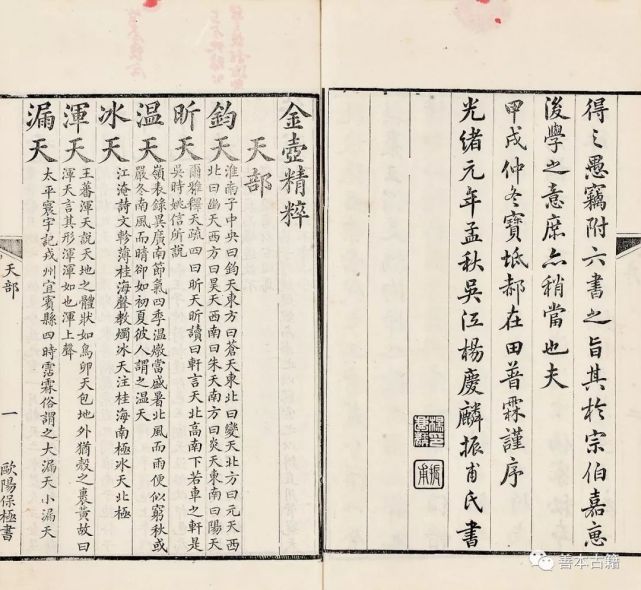 得之愚竊附六書之旨其於宗伯嘉惠
後學之意庶亦稍當也夫
甲戌仲冬寶坻郝在田普霖謹序
光緒元年孟秋吳江楊慶麟振甫氏書
金壺精粹
天部
鈞天
淮南子中央曰鈞天東方曰蒼天東北曰變天北方曰元天西
北曰幽天西方曰昊天西南曰朱天南方曰炎天東南曰陽天
昕天
爾雅釋天疏四曰昕天昕讀曰軒言天北高南下若車之軒是
吳時姚信所說
温天
嶺表錄異廣南節氣四季温燠當盛暑北風而雨便似窮秋或
嚴冬南風而晴卻如初夏彼人謂之温天
冰天
江淹詩文軫薄桂海聲教燭冰天注桂海南極冰天北極
渾天
王蕃渾天說天地之體狀如鳥卵天包地外猶殼之裹黃故曰
渾天言其形渾渾如也渾上聲
漏天
太平寰宇記戎州宜賓縣四時霑霖俗謂之大漏天小漏天
天部
一
歐陽保極書
善本古籍